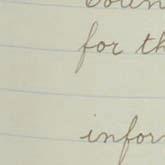 for th
infor